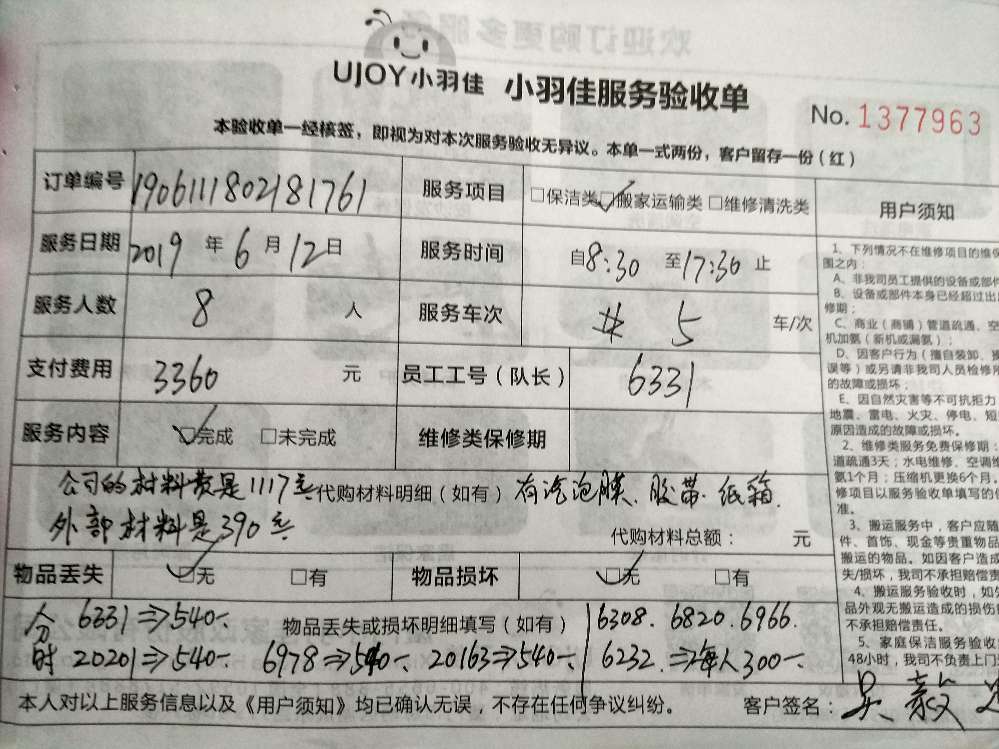 欢迎订购更多服务
UJOY小羽佳 小羽佳服务验收单
No. 1377963
本验收单一经核签，即视为对本次服务验收无异议。本单一式两份，客户留存一份（红）
订单编号 1906111802181761 服务项目 □保洁类 □搬家运输类 □维修清洗类
服务日期 2019年6月12日 服务时间 自8:30至17:30止
服务人数 8人 服务车次 5车/次
支付费用 3360元 员工工号（队长） 6331
服务内容 □完成 □未完成 维修类保修期
公司的材料费是1117元 代购材料明细（如有） 有汽泡膜、胶带.纸箱.
外部材料是390元 代购材料总额： 元
物品丢失 □无 □有 物品损坏 □无 □有
6331⇒540-. 物品丢失或损坏明细填写（如有） 6308.6820.6966.
时 20201⇒540-. 6978⇒540-. 20163⇒540-. 6232.⇒每人300-.
本人对以上服务信息以及《用户须知》均已确认无误，不存在任何争议纠纷。 客户签名：吴毅
用户须知
1、下列情况不在维修项目的维保
围之内：
A、非我司员工提供的设备或部件
B、设备或部件本身已经超过出
修期；
C、商业（商铺）管道疏通、空
机加氨（新机或漏氨）；
D、因客户行为（擅自装卸、
误等）或另请非我司人员检修所
的故障或损坏；
E、因自然灾害等不可抗拒力
地震、雷电、火灾、停电、短
原因造成的故障或损坏。
2、维修类服务免费保修期：
道疏通3天；水电维修、空调维
氨1个月；压缩机更换6个月。
修项目以服务验收单填写的
准。
3、搬运服务中，客户应随
件、首饰、现金等贵重物品
搬运的物品。如因客户造成
失/损坏，我司不承担赔偿责
4、搬运服务验收时，如
品外观无搬运造成的损伤
不承担赔偿责任。
5、家庭保洁服务验收
48小时，我司不负责上门